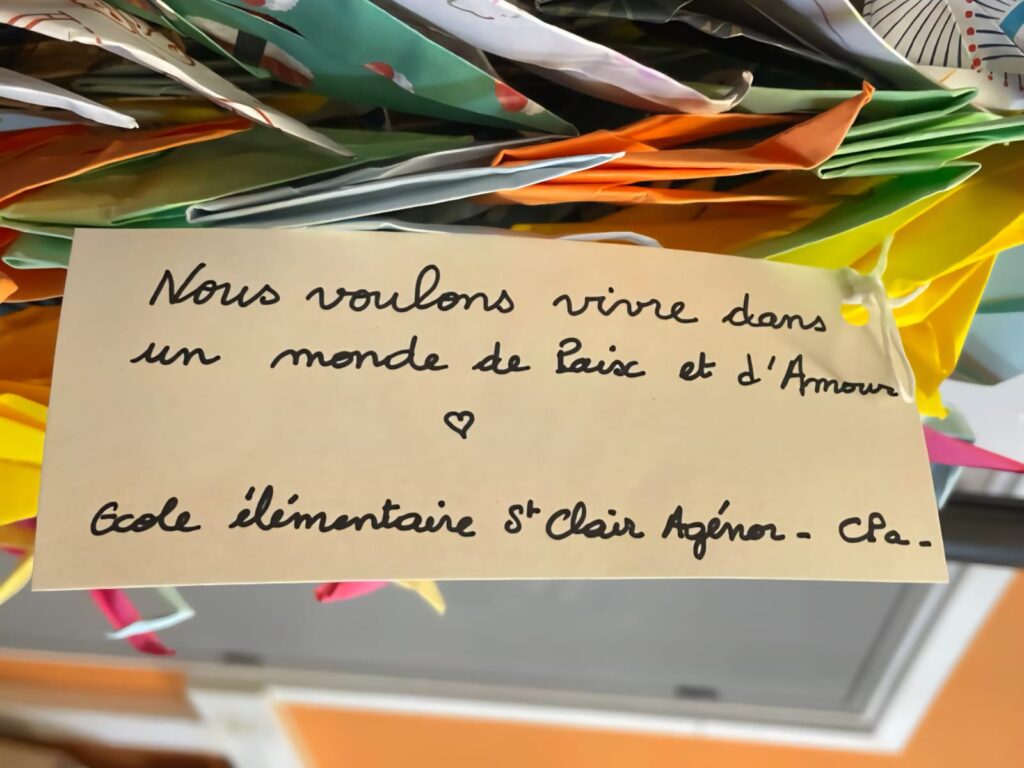 Nous voulons vivre dans
un monde de Paix et d'Amour
♡
Ecole élémentaire St Clair Agénor - CPa -